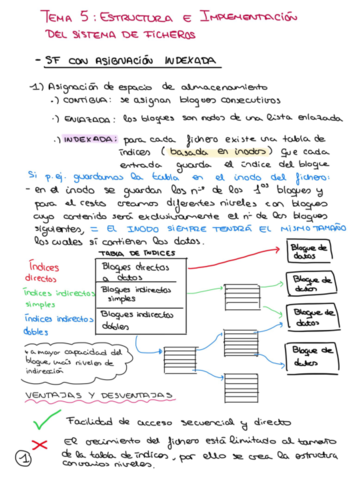 TEMA 5: ESTRUCTURA E IMPLEMENTACIÓN
DEL SISTEMA DE FICHEROS
- SF CON ASIGNACIÓN INDEXADA
-1) Asignación de espacio de almacenamiento
·) CONTIGUA: se asignan bloques consecutivos
·) ENLAZADA: los bloques son nodos de una lista enlazada
·) INDEXADA: para cada fichero existe una tabla de
índices (basada en inodos) que cada
entrada guarda el índice del bloque
Si p.ej. guardamos la tabla en el inodo del fichero:
- en el inodo se guardan los nºs de los 1os bloques y
para el resto creamos diferentes niveles con bloques
cuyo contenido será exclusivamente el nº de los bloques
siguientes, = EL INODO SIEMPRE TENDRÁ EL MISMO TAMAÑO
los cuales sí contienen los datos.
TABLA DE ÍNDICES
Índices
directos
Índices indirectos
simples
Índices indirectos
dobles
Bloques directos
a datos
Bloques indirectos
simples
Bloques indirectos
dobles
Bloque de
datos
Bloque de
datos
Bloque de
datos
Bloque de
datos
a mayor capacidad del
bloque, más niveles de
indirección
VENTAJAS Y DESVENTAJAS
Facilidad de acceso secuencial y directo
El crecimiento del fichero está limitado al tamaño
de la tabla de índices, por ello se crea la estructura
con varios niveles.
1